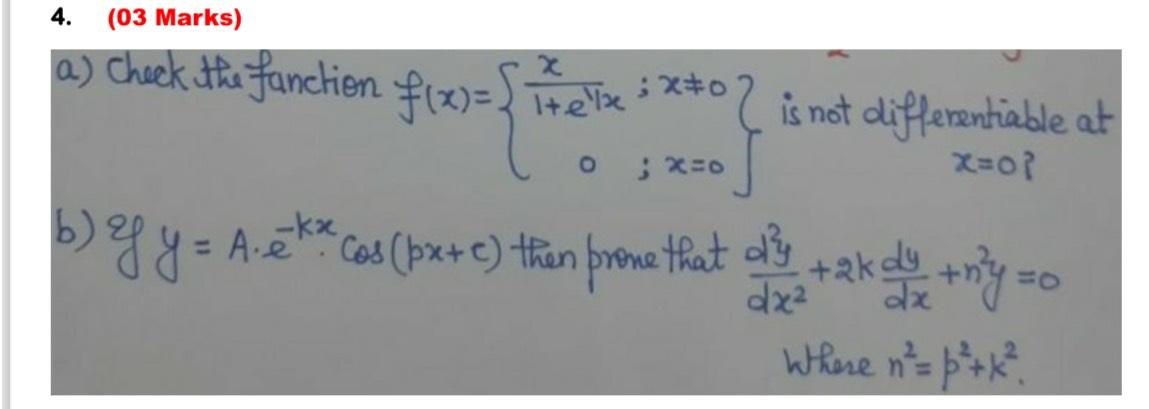 4. (03 Marks)
a) Check the fanction f(x)= { x / 1+e^1/x ; x≠0 } is not differentiable at
0 ; x=0 x=0?
b) If y = A.e^-kx. Cos(px+c) then prove that d²y/dx² +2k dy/dx +n²y =0
Where n²= p²+k².